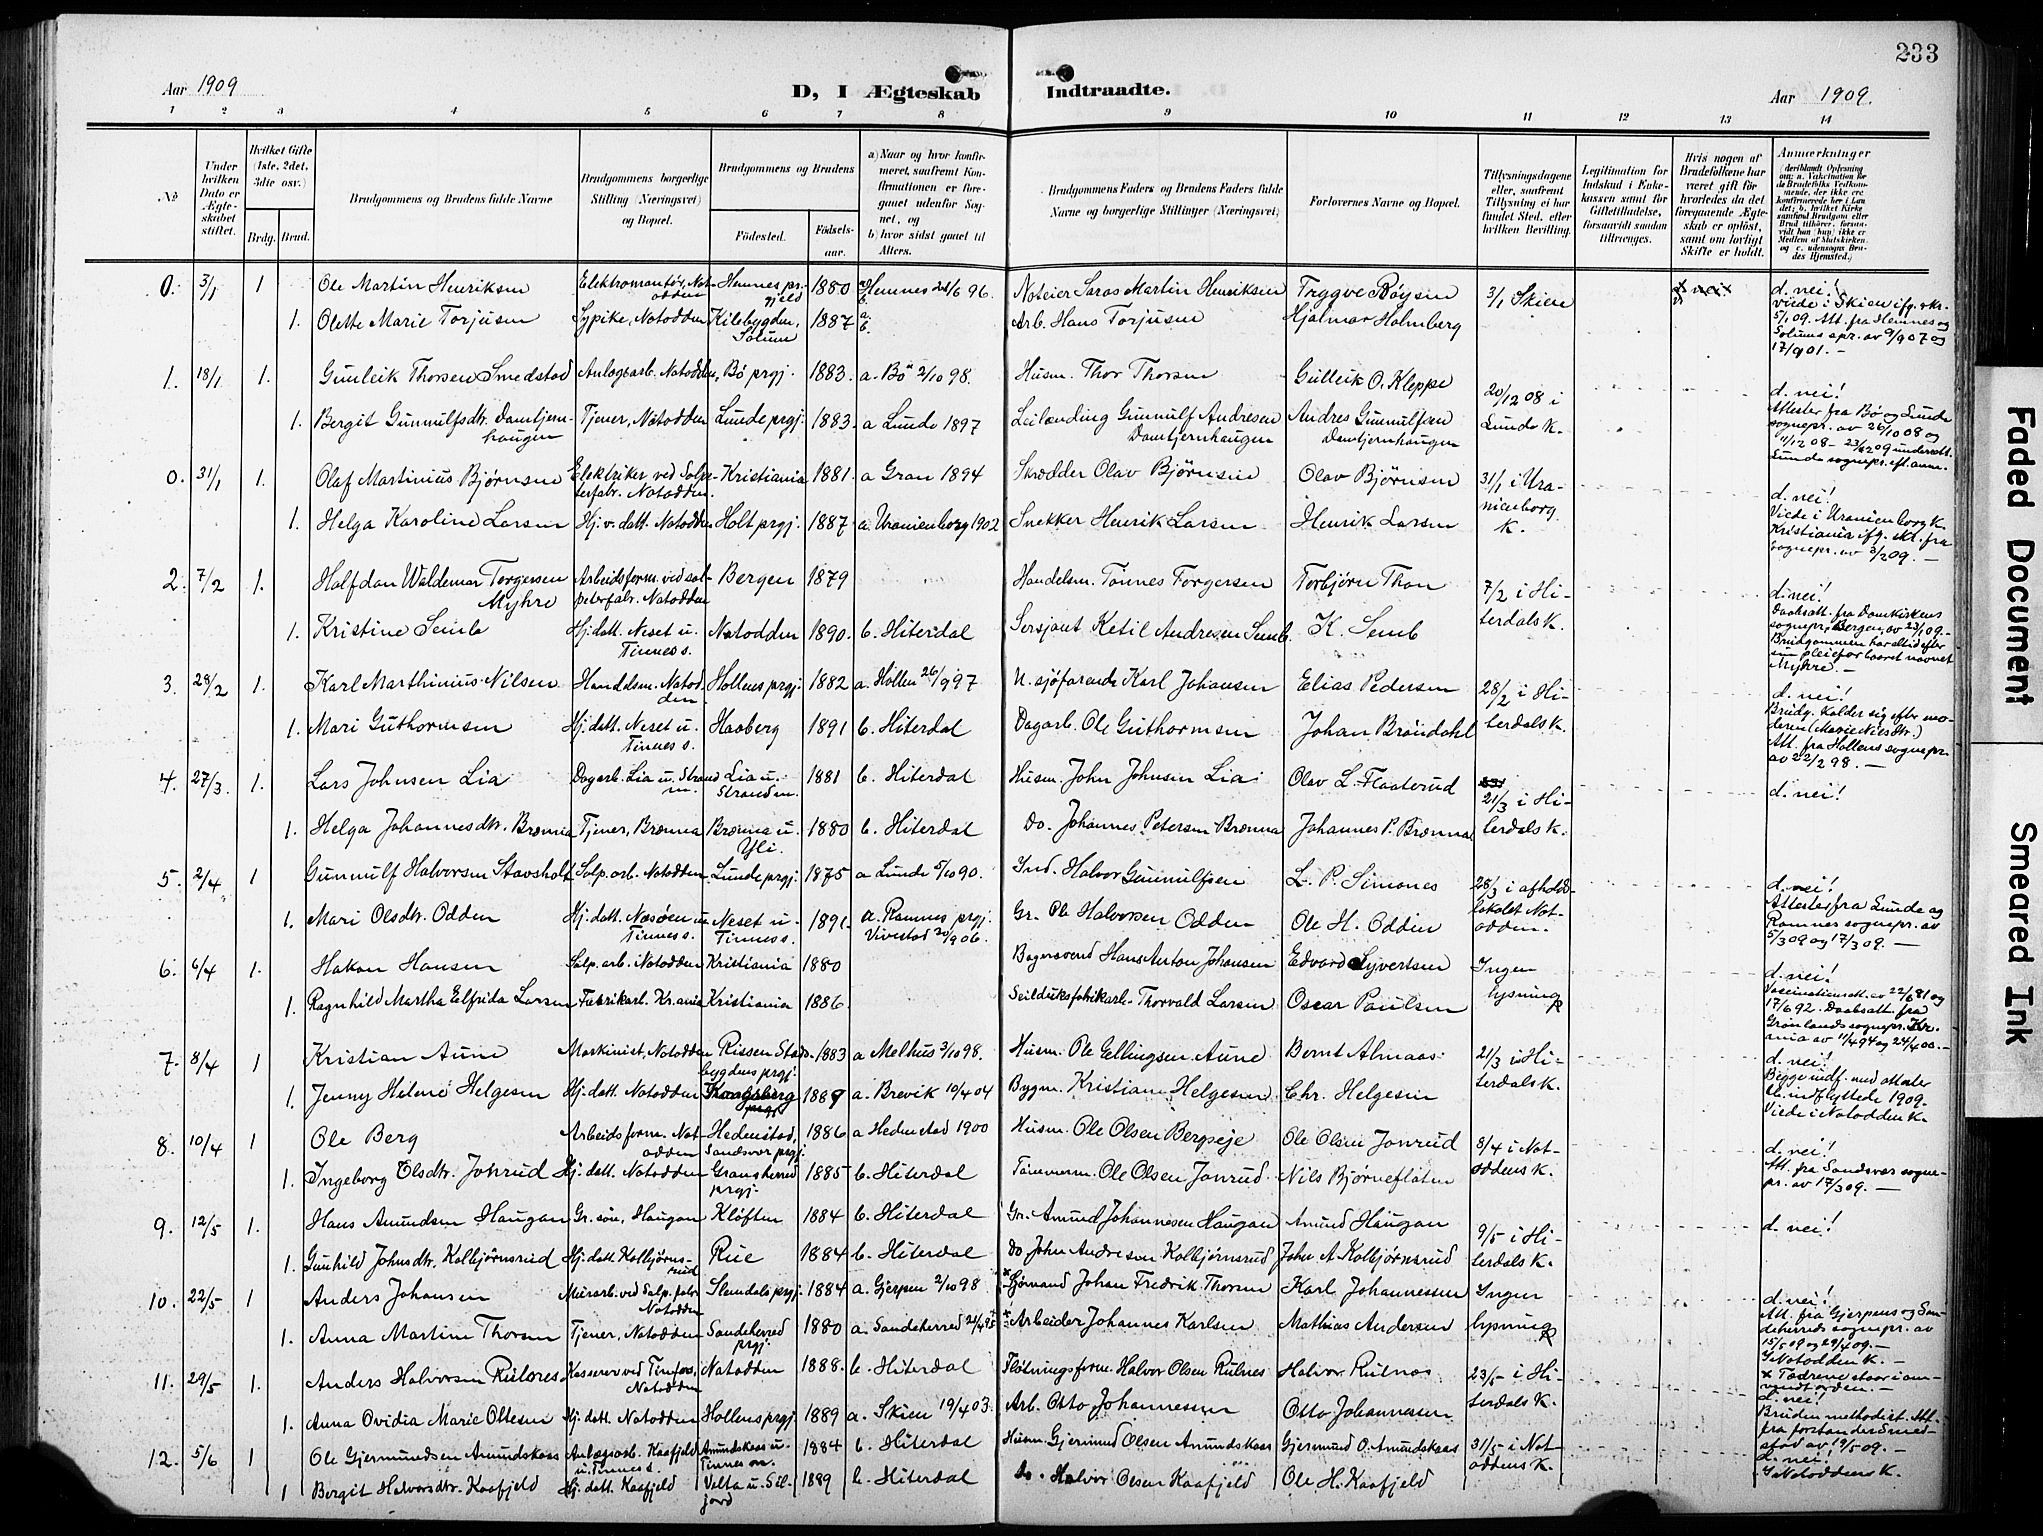 233
Aar 1909
D, I Ægteskab Indtraadte.
Aar 1909.
1 2 3 4 5 6 7 8 9 10 11 12 13 14
No
Under hvilken Dato er Ægteskabet stiftet.
Hvilket Gifte (1ste, 2det, 3die osv.)
Brdg. Brud.
Brudgommens og Brudens fulde Navne
Brudgommens borgerlige Stilling (Næringsvei) og Bopæl.
Brudgommens og Brudens
Födested.
Födselsaar.
a) Naar og hvor konfirmeret, saafremt Konfirmationen er foregaaet udenfor Sognet, og
b) hvor sidst gaaet til Alters.
Brudgommens Faders og Brudens Faders fulde Navne og borgerlige Stillinger (Næringsvei)
Forlovernes Navne og Bopæl.
Tillysningsdagene eller, saafremt Tillysning ei har fundet Sted, efter hvilken Bevilling.
Legitimation for Indskud i Enkekassen samt for Giftetilladelse, forsaavidt saadan tiltrænges.
Hvis nogen af Brudefolkene har været gift för hvorledes da det foregaaende Ægteskab er oplöst, samt om lovligt Skifte er holdt.
Anmærkninger
0. 3/1 1 Ole Martin Henriksen Elektromontör, Notodden Hemnes prgjeld 1880 a Hemnes 24/6 96. Noteier Saras Martin Henriksen Trygve Böysen 3/1 Skien nei d. nei!
1. Olette Marie Torjusen Sypike, Notodden Kilebygden, Solum 1887 a. b. Arb. Hans Torjusen Hjalmar Holmberg viede i Skien ifg. skr. 5/1 09. Att. fra Hemnes og Solums spr. av 9/9 07 og 17/9 01. —
1. 18/1 1. Gunleik Thorsen Smedstad Anlogsarb. Notodden, Bö prgj. 1883. a. Bö 2/10 98. Husm. Thor Thorsen Gulleik O. Kleppe 20/12 08 i Lunde K. d. nei!
1. Bergit Gunnulfsdtr. Damtjernhaugen Tjener, Notodden Lunde prgj. 1883. a Lunde 1897 Leilending Gunnulf Andresen Damtjernhaugen Andres Gunnulfsen Damtjernhaugen Attester fra Bö og Lunde sognepr. av 26/10 08 og 11/12 08
0. 31/1 1. Olaf Martinius Björnsen Elektriker ved Salpeterfabr. Notodden. Kristiania 1881. a Gran 1894 Skrædder Olav Björnsen Olav Björnsen 31/1 i Uranienborg K. d. nei!
1. Helga Karoline Larsen Hj. v. datt. Notodden Holt prgj. 1887 a. Uranienborg 1902 Snekker Henrik Larsen Henrik Larsen Viede i Uranienborg K. Kristiania ifg. skr. fra sognepr. av 3/2 09. —
2. 7/2 1. Halfdan Waldemar Torgersen Myhre Arbeidsform. ved salpeterfabr. Notodden Bergen 1879 Handelsm. Tönnes Torgersen Torbjörn Thon 7/2 i Hiterdals K. d. nei!
1. Kristine Semb Hj. datt. Neset u. Tinnes s. Notodden 1890. b. Hiterdal Sersjant Ketil Andresen Semb. K. Semb Daabsatt. fra Domkirkens sognepr. Bergen, av 23/1 09. — Brudgommen har altid efter sin pleiefar baaret navnet Myhre. —
3. 28/2 1. Karl Marthinius Nilsen Handelsm. Notodden. Hollens prgj. 1882 a. Hollen 26/9 97 U. sjöfarende Karl Johansen Elias Pedersen 28/2 i Hiterdals K. d. nei!
1. Mari Guthormsen Hj. datt. Neset u. Tinnes s. Haaberg 1891 b. Hiterdal Dagarb. Ole Guthormsen Johan Bröndahl Brudg. kalder sig efter moderen (Marie Nilsdtr.) Att. fra Hollens sognepr. av 22/2 98. —
4. 27/3. 1. Lars Johnsen Lia Dagarb. Lia u. Strand m. Lia u. Stranden. 1881 b. Hiterdal Husm. John Johnsen Lia Olav L. Flaaterud 21/3 i Hiterdals K. d. nei!
1. Helga Johannesdtr. Brenna Tjener, Brenna Brenna u. Yli. 1880 b. Hiterdal Do. Johannes Petersen Brenna Johannes P. Brenna
5. 2/4 1 Gunnulf Halvorsen Stavsholt Salp. arb. Notodden Lunde prgj. 1875 a Lunde 5/10 90. Ind. Halvor Gunnulfsen L. P. Simones 28/3 i afholdslokalet Notodden. d. nei!
1. Mari Olsdtr. Odden Hj. datt. Næsöen u. Tinnes s. Neset u. Tinnes s. 1891. a. Ramnes prgj. Vivestad 30/9 06. Gr. Ole Halvorsen Odden Ole H. Odden Attester fra Lunde og Ramnes sognepr. av 5/3 09 og 17/3 09. —
6. 6/4 1. Hakon Hansen Salp. arb. Notodden Kristiania 1880 Bagersvend Hans Anton Johansen Edvard Syvertsen Ingen lysning d. nei!
1. Ragnhild Martha Elfrida Larsen Fabrikarb. Kr.ania Kristiania 1886. Seilduksfabrikarb. Thorvald Larsen Oscar Paulsen Vaccinationsatt. av 22/6 81 og 17/6 92. Daabsatt. fra Grönlands sognepr. Kr.ania av 11/4 94 og 24/4 00. —
7. 8/4 1 Kristian Aune Maskinist, Notodden Rissen Stadsbygdens prgj. 1883 a Melhus 3/10 98. Husm. Ole Ellingsen Aune Bernt Almaas 21/3 i Hiterdals K. d. nei!
1. Jenny Helene Helgesen Hj. datt. Notodden Kongsberg prgj 1889 a. Brevik 10/4 04 Bygm. Kristian Helgesen Chr. Helgesen Begge indf. med attester bl. indflyttede 1909. Viede i Notodden K.
8. 10/4 1 Ole Berg Arbeidsform. Notodden Hedenstad, Sandsvær prgj. 1886 a Hedenstad 1900 Husm. Ole Olsen Bergseje Ole Olsen Jonrud 8/4 i Notoddens K. d. nei!
1. Ingeborg Olsdtr. Jonrud Hj. datt. Notodden Gransherred prgj. 1885 b. Hiterdal Tömmerm. Ole Olsen Jonrud Nils Björneflaten Att. fra Sandsvær sognepr. av 17/3 09. —
9. 12/5 1. Hans Amundsen Haugan Gr. sön, Haugan Klöften 1884 b. Hiterdal Gr. Amund Johannesen Haugan Amund Haugan 9/5 i Hiterdals K. d. nei!
1. Gunhild Johnsdtr. Kolbjörnsrud Hj. datt. Kolbjörnsrud Rue 1884 b. Hiterdal Do John Andresen Kolbjörnsrud John A. Kolbjörnsrud
10. 22/5 1 Anders Johansen Murarb. ved Salp. fabr. Notodden Slemdals prgj. 1884 a. Gjerpen 2/10 98 Gjörnand Johan Fredrik Thorsen Karl Johannessen Ingen lysning d. nei!
1. Anna Martine Thorsen Tjener, Notodden Sandeherred prgj. 1880 a. Sandeherred 21/4 95 Arbeider Johannes Karlsen Mathias Andersen Att. fra Gjerpens og Sandeherreds sognepr. av 15/5 09 og 29/4 09. — I Notodden K. — x Fædrene staar i omvendt orden. —
11. 29/5 1. Anders Halvorsen Rulnes Kasserer ved Tinfos, Notodden Notodden 1888. b. Hiterdal Flötningsform. Halvor Olsen Rulnes Halvor Rulnes 23/5 i Hiterdals K. d. nei!
1. Anna Ovidia Marie Ottesen Hj. datt. Notodden Hollens prgj. 1889 a. Skien 19/4 03. Arb. Otto Johannessen Otto Johannessen Bruden methodist. Att. fra forstander Smedstad av 19/5 09. —
12. 5/6 1 Ole Gjermundsen Amundskaas Anlægsarb. Kaafjeld u. Tinnes s. Amundskaas u. Tinnes 1884 b. Hiterdal Husm. Gjermund Olsen Amundskaas Gjermund O. Amundskaas 31/5 i Notoddens K. d. nei!
1 Bergit Halvorsdtr. Kaafjeld Hj. datt. Kaafjeld Velta u. Siljord 1889 b. Hiterdal Do. Halvor Olsen Kaafjeld Ole H. Kaafjeld I Notoddens K.
Faded Document
Smeared Ink